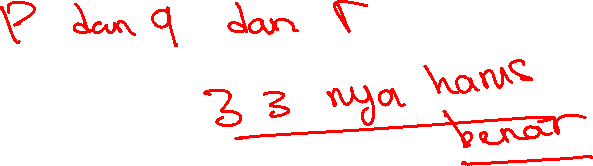 P dan q dan r
3 3 nya harus
benar